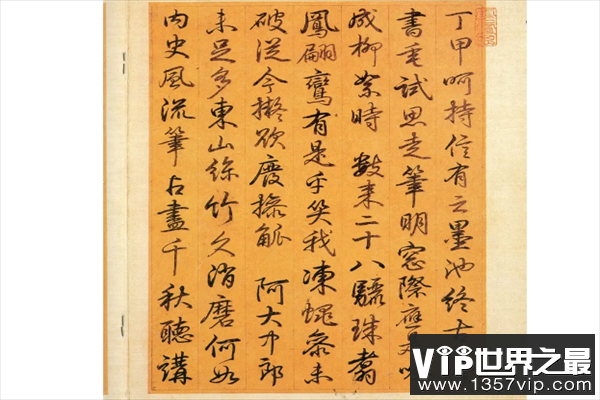 丁甲呵持信有之墨池終
書垂試思走筆明窗際應
成柳絮時 數来二十八驪珠翥
鳳翩鸞有是乎笑我凍蠅參未
破從今擬欲廢操觚 阿大中郎
未足多東山絲竹久消磨何如
内史風流筆占盡千秋聽講
VIP世界之最
www.1357vip.com